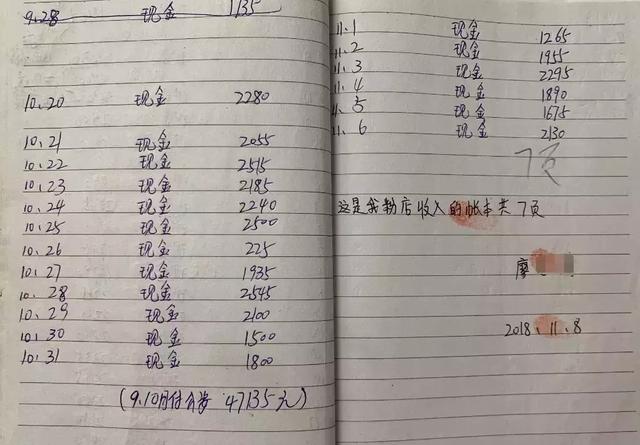 9.28 现金 1135
10.20 现金 2280
10.21 现金 2055
10.22 现金 2515
10.23 现金 2185
10.24 现金 2240
10.25 现金 2500
10.26 现金 225
10.27 现金 1935
10.28 现金 2545
10.29 现金 2100
10.30 现金 1500
10.31 现金 1800
(9.10月份 47135元)
11.1 现金 1265
11.2 现金 1955
11.3 现金 2295
11.4 现金 1890
11.5 现金 1675
11.6 现金 2130
7页
这是我粉店收入的帐本共7页
廖
2018.11.8